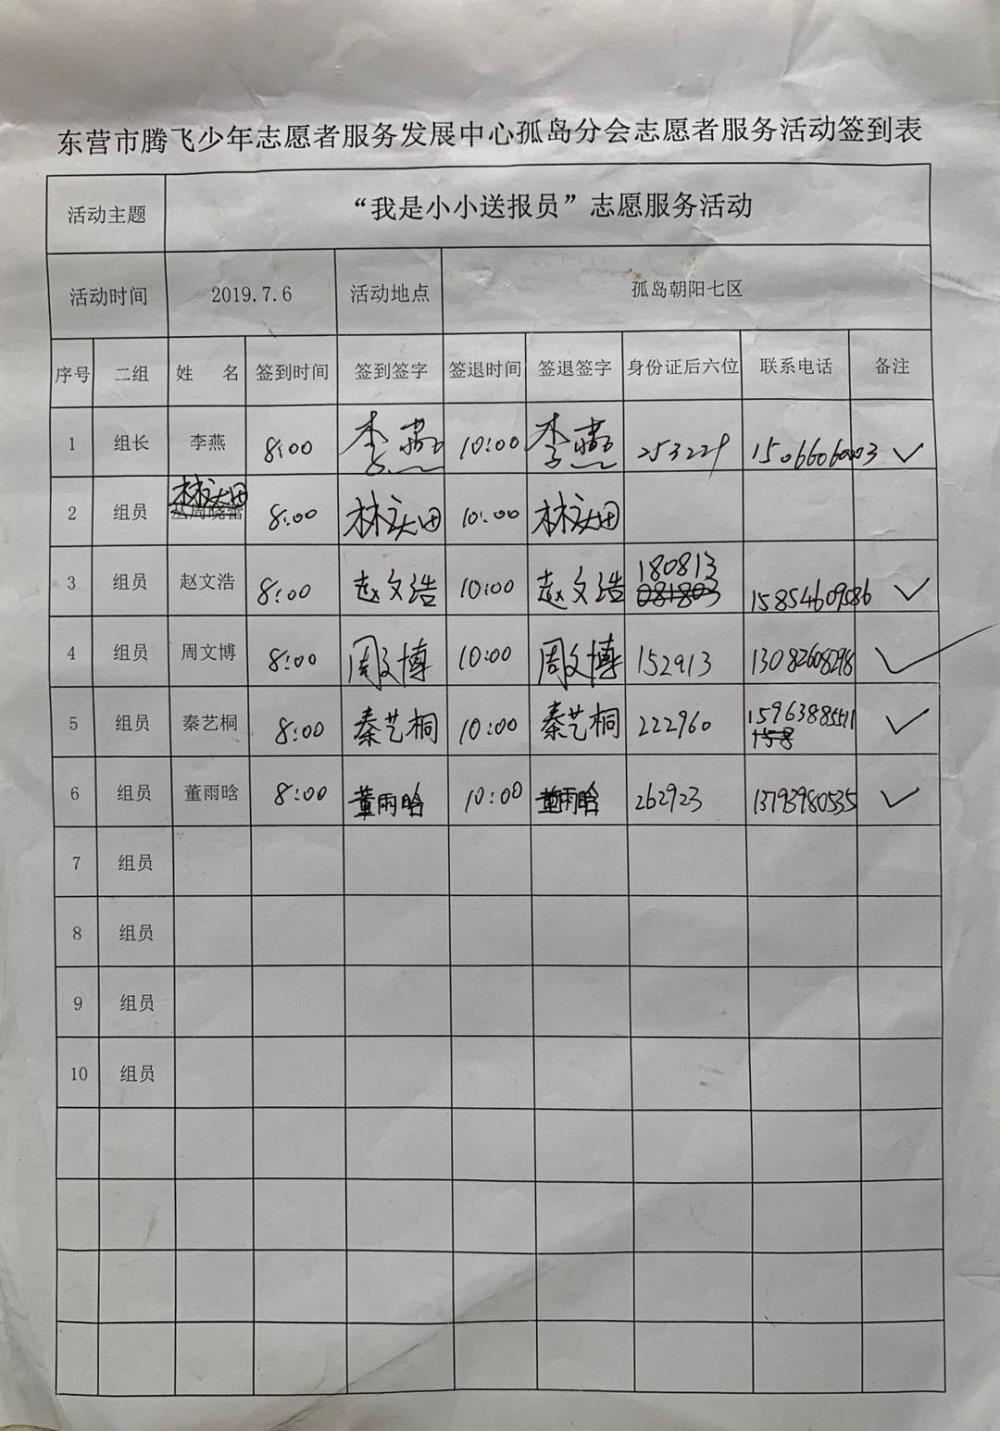 东营市腾飞少年志愿者服务发展中心孤岛分会志愿者服务活动签到表
活动主题 “我是小小送报员”志愿服务活动
活动时间 2019.7.6 活动地点 孤岛朝阳七区
序号 二组 姓 名 签到时间 签到签字 签退时间 签退签字 身份证后六位 联系电话 备注
1 组长 李燕 8:00 李燕 10:00 李燕 253229 ✓
2 组员 8:00 10:00
3 组员 赵文浩 8:00 赵文浩 10:00 赵文浩 180813 15854609586 ✓
081803
4 组员 周文博 8:00 周文博 10:00 周文博 152913 13082608298 ✓
5 组员 秦艺桐 8:00 秦艺桐 10:00 秦艺桐 222960 ✓
158
6 组员 董雨晗 8:00 董雨晗 10:00 董雨晗 262923 13793980535 ✓
7 组员
8 组员
9 组员
10 组员